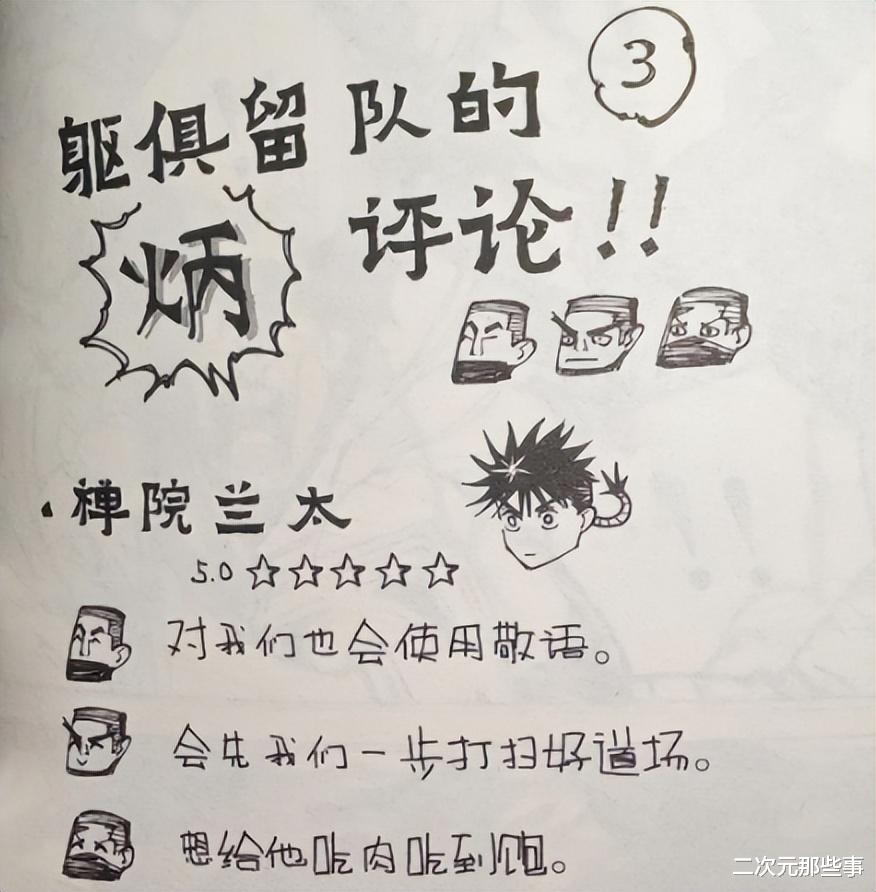 3
躯俱留队的
炳
评论!!
·禅院兰太
5.0☆☆☆☆☆
对我们也会使用敬语。
会先我们一步打扫好道场。
想给他吃肉吃到饱。
二次元那些事